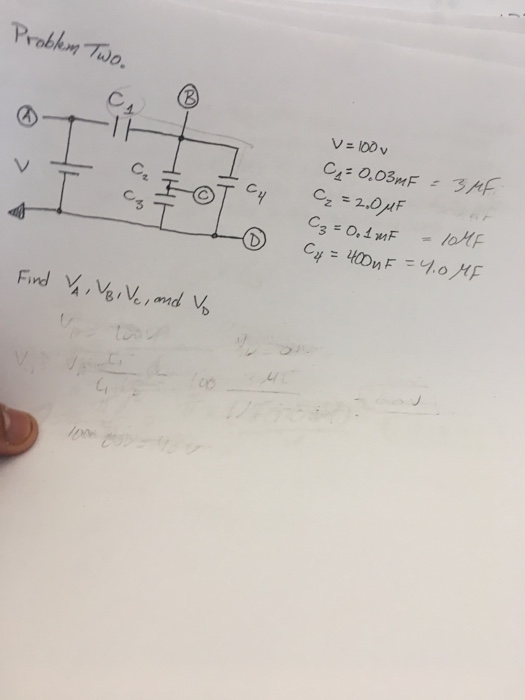 Problem Two.
A
C1
B
V
C2
C3
C
C4
D
V = 100v
C1 = 0.03mF = 3 μF
C2 = 2.0μF
C3 = 0.1mF = 10μF
C4 = 400nF = 4.0 μF
Find VA, VB, VC, and VD
100